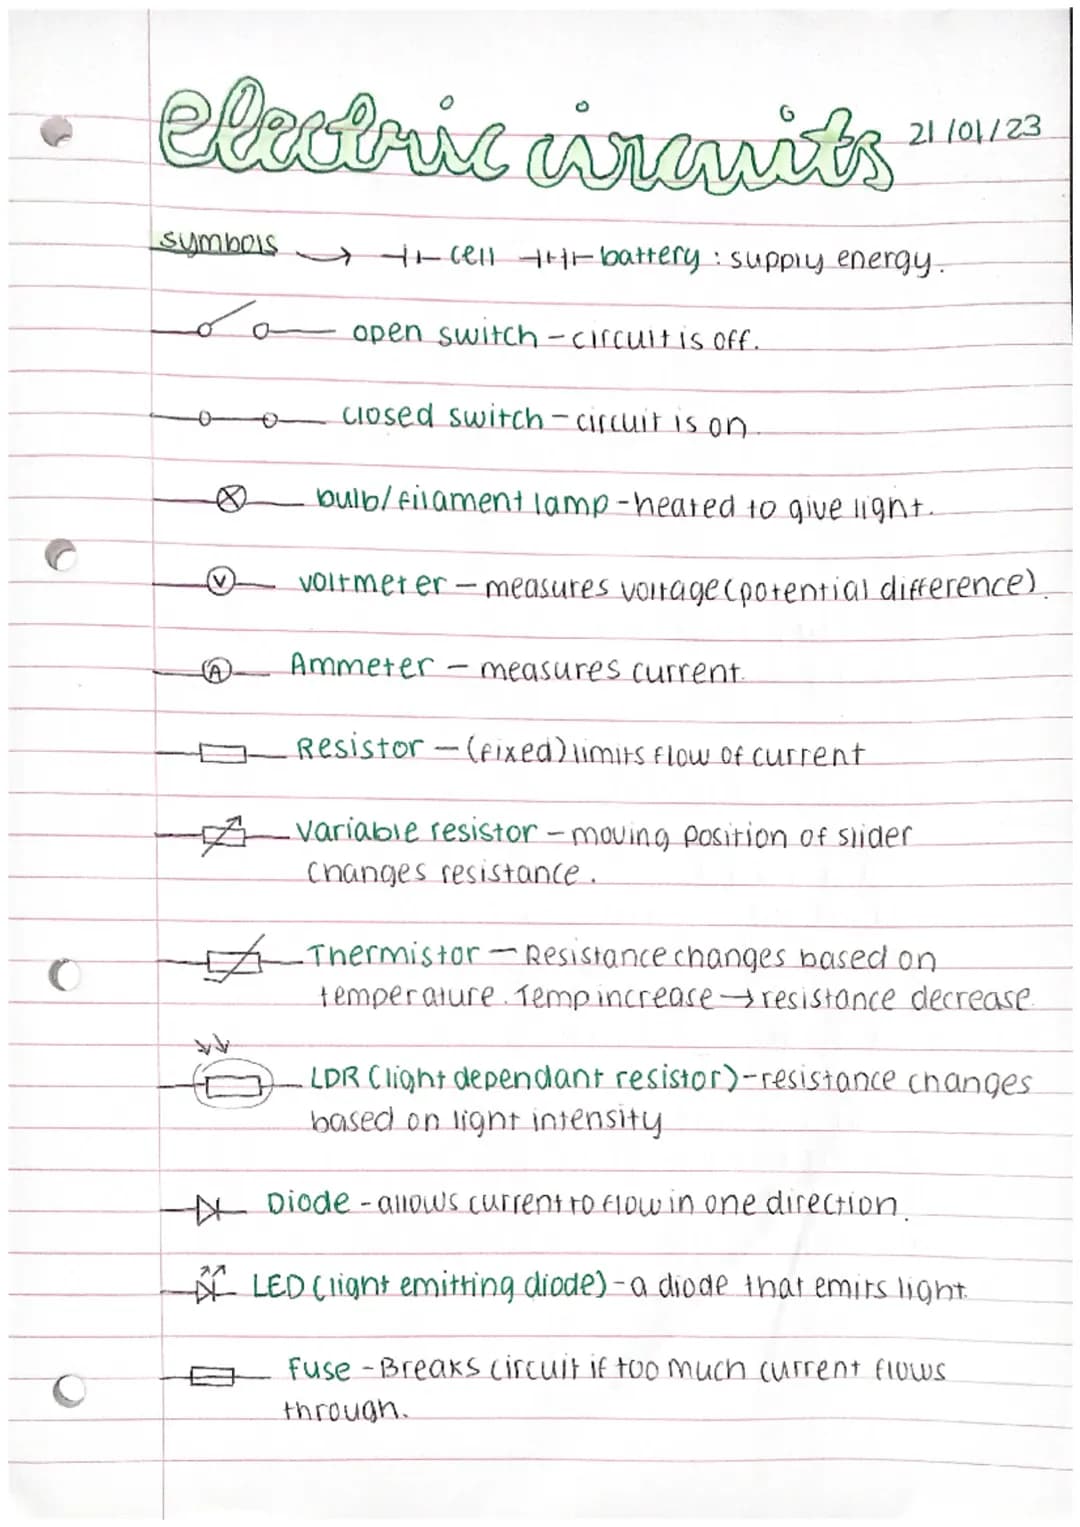 electric circuits 21/01/23
symbols → cell battery : supply energy.
open switch - circuit is off.
closed switch - circuit is on.
bulb/filament lamp - heated to give light.
V voltmeter - measures voltage (potential difference).
A Ammeter - measures current.
Resistor - (fixed) limits flow of current
Variable resistor - moving position of slider
changes resistance.
Thermistor - Resistance changes based on
temperature. Temp increase → resistance decrease.
LDR (light dependant resistor) - resistance changes
based on light intensity
Diode - allows current to flow in one direction.
LED (light emitting diode) - a diode that emits light.
Fuse - Breaks circuit if too much current flows
through.